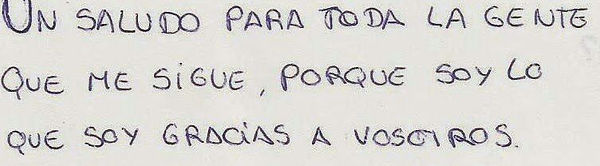 UN SALUDO PARA TODA LA GENTE
QUE ME SIGUE, PORQUE SOY LO
QUE SOY GRACIAS A VOSOTROS.